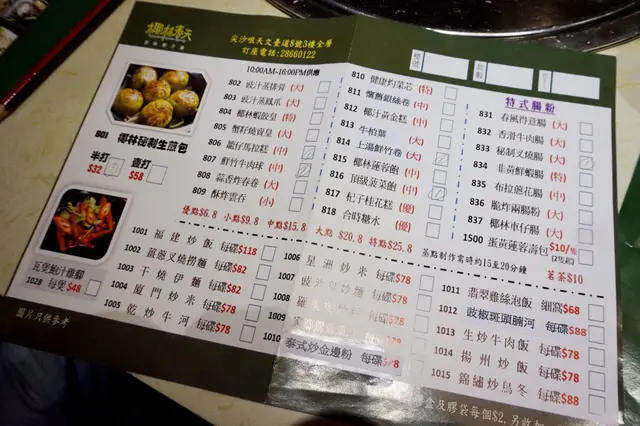 椰林春天
尖沙咀天文臺道8號3樓全層
訂座電話:28660122
801 椰林秘制生煎包
半打 壹打
$32 $58
瓦煲鮑汁雞腳
1028 每煲$48
圖片只供參考
10:00AM-16:00PM供應
802 豉汁蒸排骨 (大)
803 豉汁蒸鳳爪 (大)
804 椰林蝦餃皇 (特)
805 蟹籽燒賣皇 (大)
806 龍仔馬拉糕 (中)
807 鮮竹牛肉球 (中)
808 蒜香炸春卷 (大)
809 酥炸雲吞 (小)
810 健康灼菜芯 (特)
811 懷舊銀絲卷 (中)
812 椰汁黃金糕 (中)
813 牛柏葉 (大)
814 上湯鮮竹卷 (大)
815 椰林蓮蓉飽 (中)
816 頂級菠菜飽 (中)
817 杞子桂花糕 (優)
818 合時糖水 (優)
特式腸粉
831 春風得意腸 (大)
832 香滑牛肉腸 (大)
833 秘制叉燒腸 (大)
834 韭黃鮮蝦腸 (特)
835 布拉蔥花腸 (中)
836 脆炸兩腸粉 (大)
837 椰林車仔腸 (大)
1500 蛋黃蓮蓉壽包 $10/每
優點$6.8 小點$9.8 中點$15.8
大點 $20.8 特點$25.8
蒸點制作需時約15至20分鐘
茗茶$10
1001 福建炒飯 每碟$118
1002 薑蔥叉燒撈麵 每碟$82
1003 干燒伊麵 每碟$82
1004 廈門炒米 每碟$78
1005 乾炒牛河 每碟$78
1006 星洲炒米 每碟$78
每碟$78
每碟$78
每碟$78
1010 泰式炒金邊粉 每碟
1011 翡翠雞絲泡飯 細窩$68
1012 豉椒斑頭腩河 每碟$88
1013 生炒牛肉飯 每碟$78
1014 揚州炒飯 每碟$78
1015 錦繡炒烏冬 每碟$88
盒及膠袋每個$2,另收加